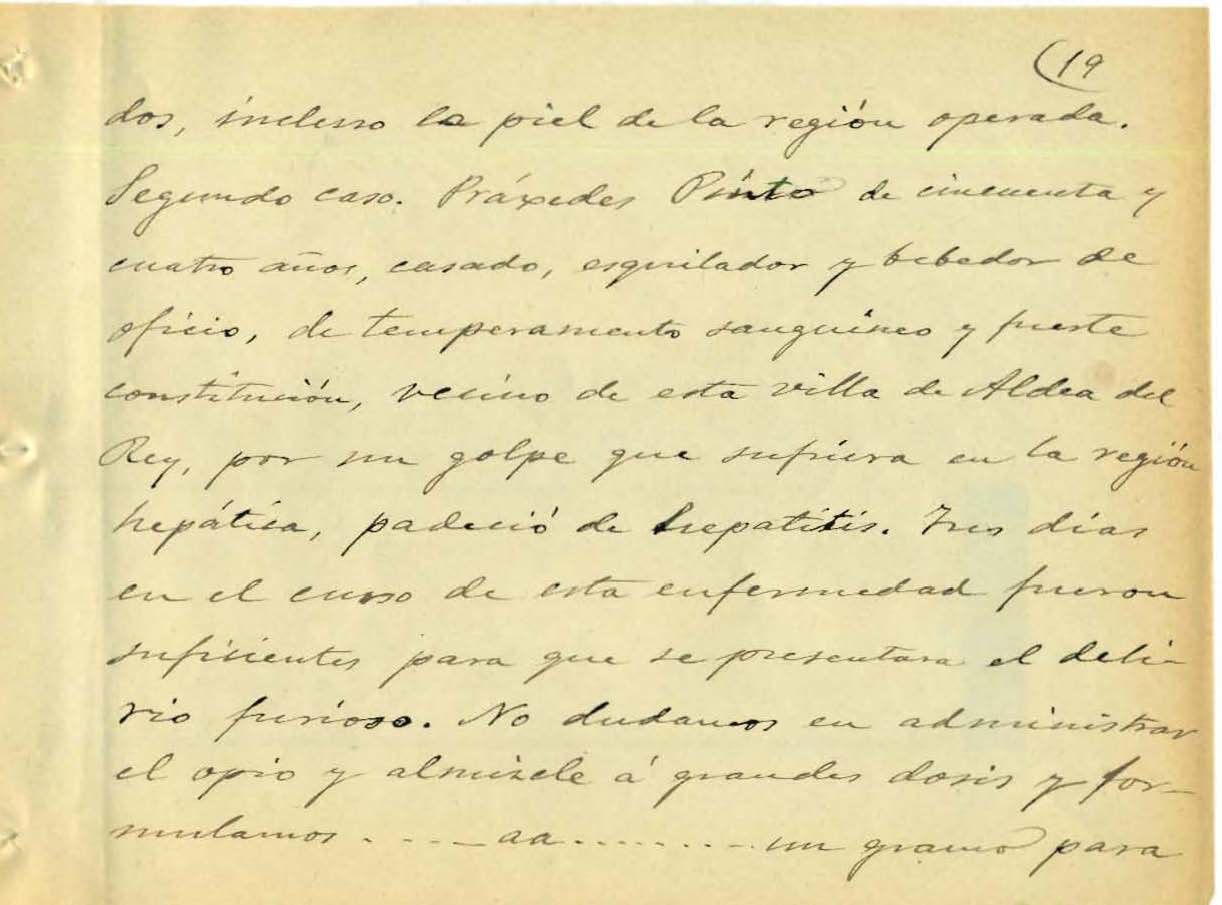 (19
dos, incluso la piel de la región operada.
Segundo caso. Práxedes Pinto de cincuenta y
cuatro años, casado, esquilador y bebedor de
oficio, de temperamento sanguineo y fuerte
constitución, vecino de esta villa de Aldea del
Rey, por un golpe que sufriera en la región
hepática, padeció de hepatitis. Tres dias
en el curso de esta enfermedad fueron
suficientes para que se presentara el deli-
rio furioso. No dudamos en administrar
el opio y almizcle á grandes dosis y for-
mulamos . . . . . aa. . . . . . . . . un gramo para